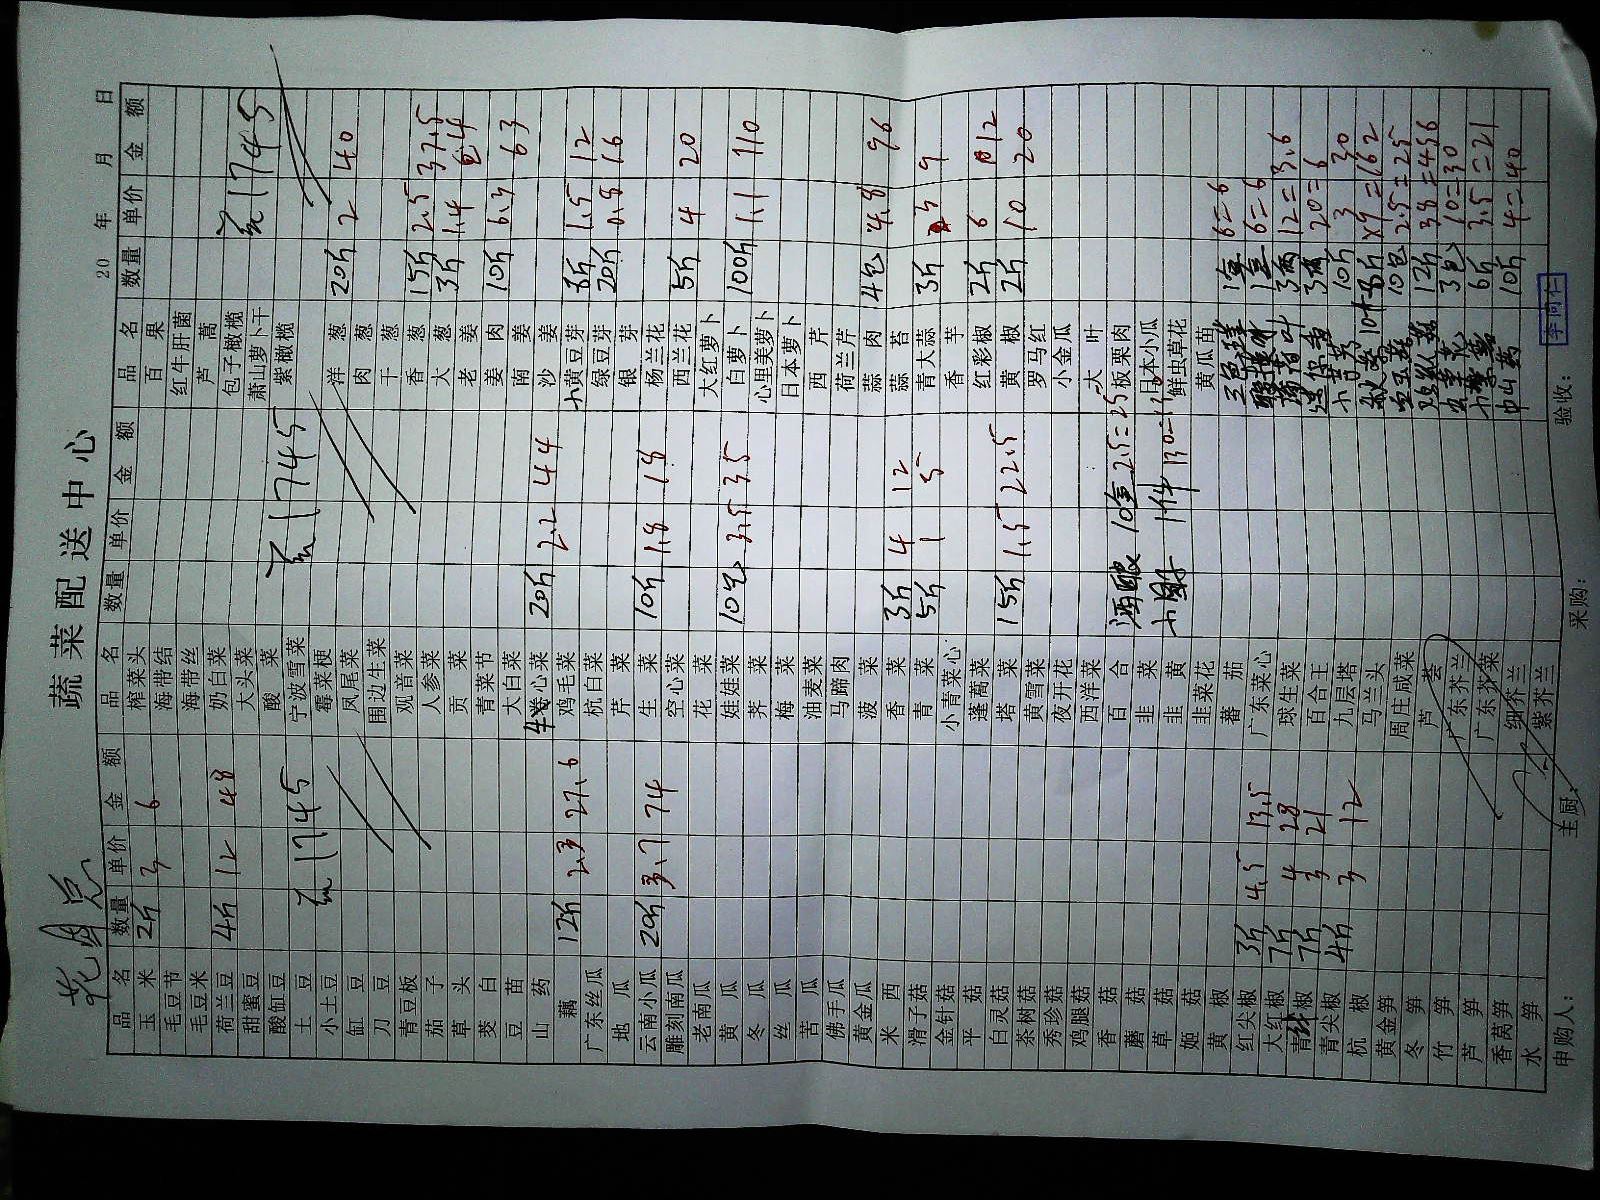 蔬菜配送中心
20 年 月 日
品名 数量 单价 金额
玉米 2斤 3 6
毛豆节
毛豆米
荷兰豆 4斤 12 48
甜蜜豆
酸缸豆
土豆
小土豆
缸豆
刀豆
青豆板
茄子
草头
茭白
豆苗
山药
藕 12斤 2.3 27.6
广东丝瓜
地瓜
云南小瓜 20斤 3.7 74
雕刻南瓜
老南瓜
黄瓜
冬瓜
丝瓜
苦瓜
佛手瓜
黄金瓜
米西
滑子菇
金针菇
平菇
白灵菇
茶树菇
秀珍菇
鸡腿菇
香菇
蘑菇
草菇
姬菇
黄椒
红尖椒 3斤 4.5 13.5
大红椒 7斤 4 28
青椒 7斤 3 21
青尖椒 4斤 3 12
杭椒
黄金笋
冬笋
竹笋
芦笋
香莴笋
水笋
1745
品名 数量 单价 金额
榨菜头
海带结
海带丝
奶白菜
大头菜
酸菜
宁波雪菜
霉菜梗
凤尾菜
围边生菜
观音菜
人参菜
贡菜
青菜节
大白菜
卷心菜 20斤 2.2 44
鸡毛菜
杭白菜
芹菜
生菜 10斤 1.8 18
空心菜
花菜
娃娃菜 10包 3.5 35
荠菜
梅菜
油麦菜
马蹄肉
菠菜
香菜 3斤 4 12
青菜 5斤 1 5
小青菜心
蓬蒿菜
塔菜 15斤 1.5 22.5
黄雪菜
夜开花
西洋菜
百合
韭菜
韭黄
韭菜花
蕃茄
广东菜心
球生菜
百合王
九层塔
马兰头
周庄咸菜
芦荟
广东芥兰
广东芥菜
细芥兰
紫芥兰
1745
10盒 2.5=25
1件
品名 数量 单价 金额
百果
红牛肝菌
芦蒿
包子橄榄
萧山萝卜干
紫橄榄
1745
洋葱 20斤 2 40
肉葱
干葱
香葱 15斤 2.5 37.5
大葱 3斤 1.4 4
老姜
姜肉 10斤 6.3 63
南姜
沙姜
小黄豆芽 8斤 1.5 12
绿豆芽 20斤 0.8 16
银芽
杨兰花
西兰花 5斤 4 20
大红萝卜
白萝卜 100斤 1.1 110
心里美萝卜
日本萝卜
西芹
荷兰芹
蒜肉 4包 96
蒜苔
青大蒜 3斤 3 9
香芋
红彩椒 2斤 6 12
黄椒 2斤 10 20
罗马红
小金瓜
大叶
板栗肉
日本小瓜
鲜虫草花
黄瓜苗
6=6
6=6
12=3.6
20=6
10斤 3 30
×9=162
10包 2.5=25
12斤 38=456
3包 10=30
6斤 3.5=21
10斤 4=40
申购人:
主厨:
采购:
验收: